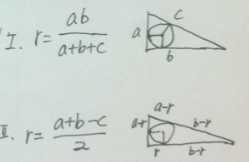 I. r = ab / (a+b+c)
a c
b
II. r = (a+b-c) / 2
a-r
a-r b-r
r b-r